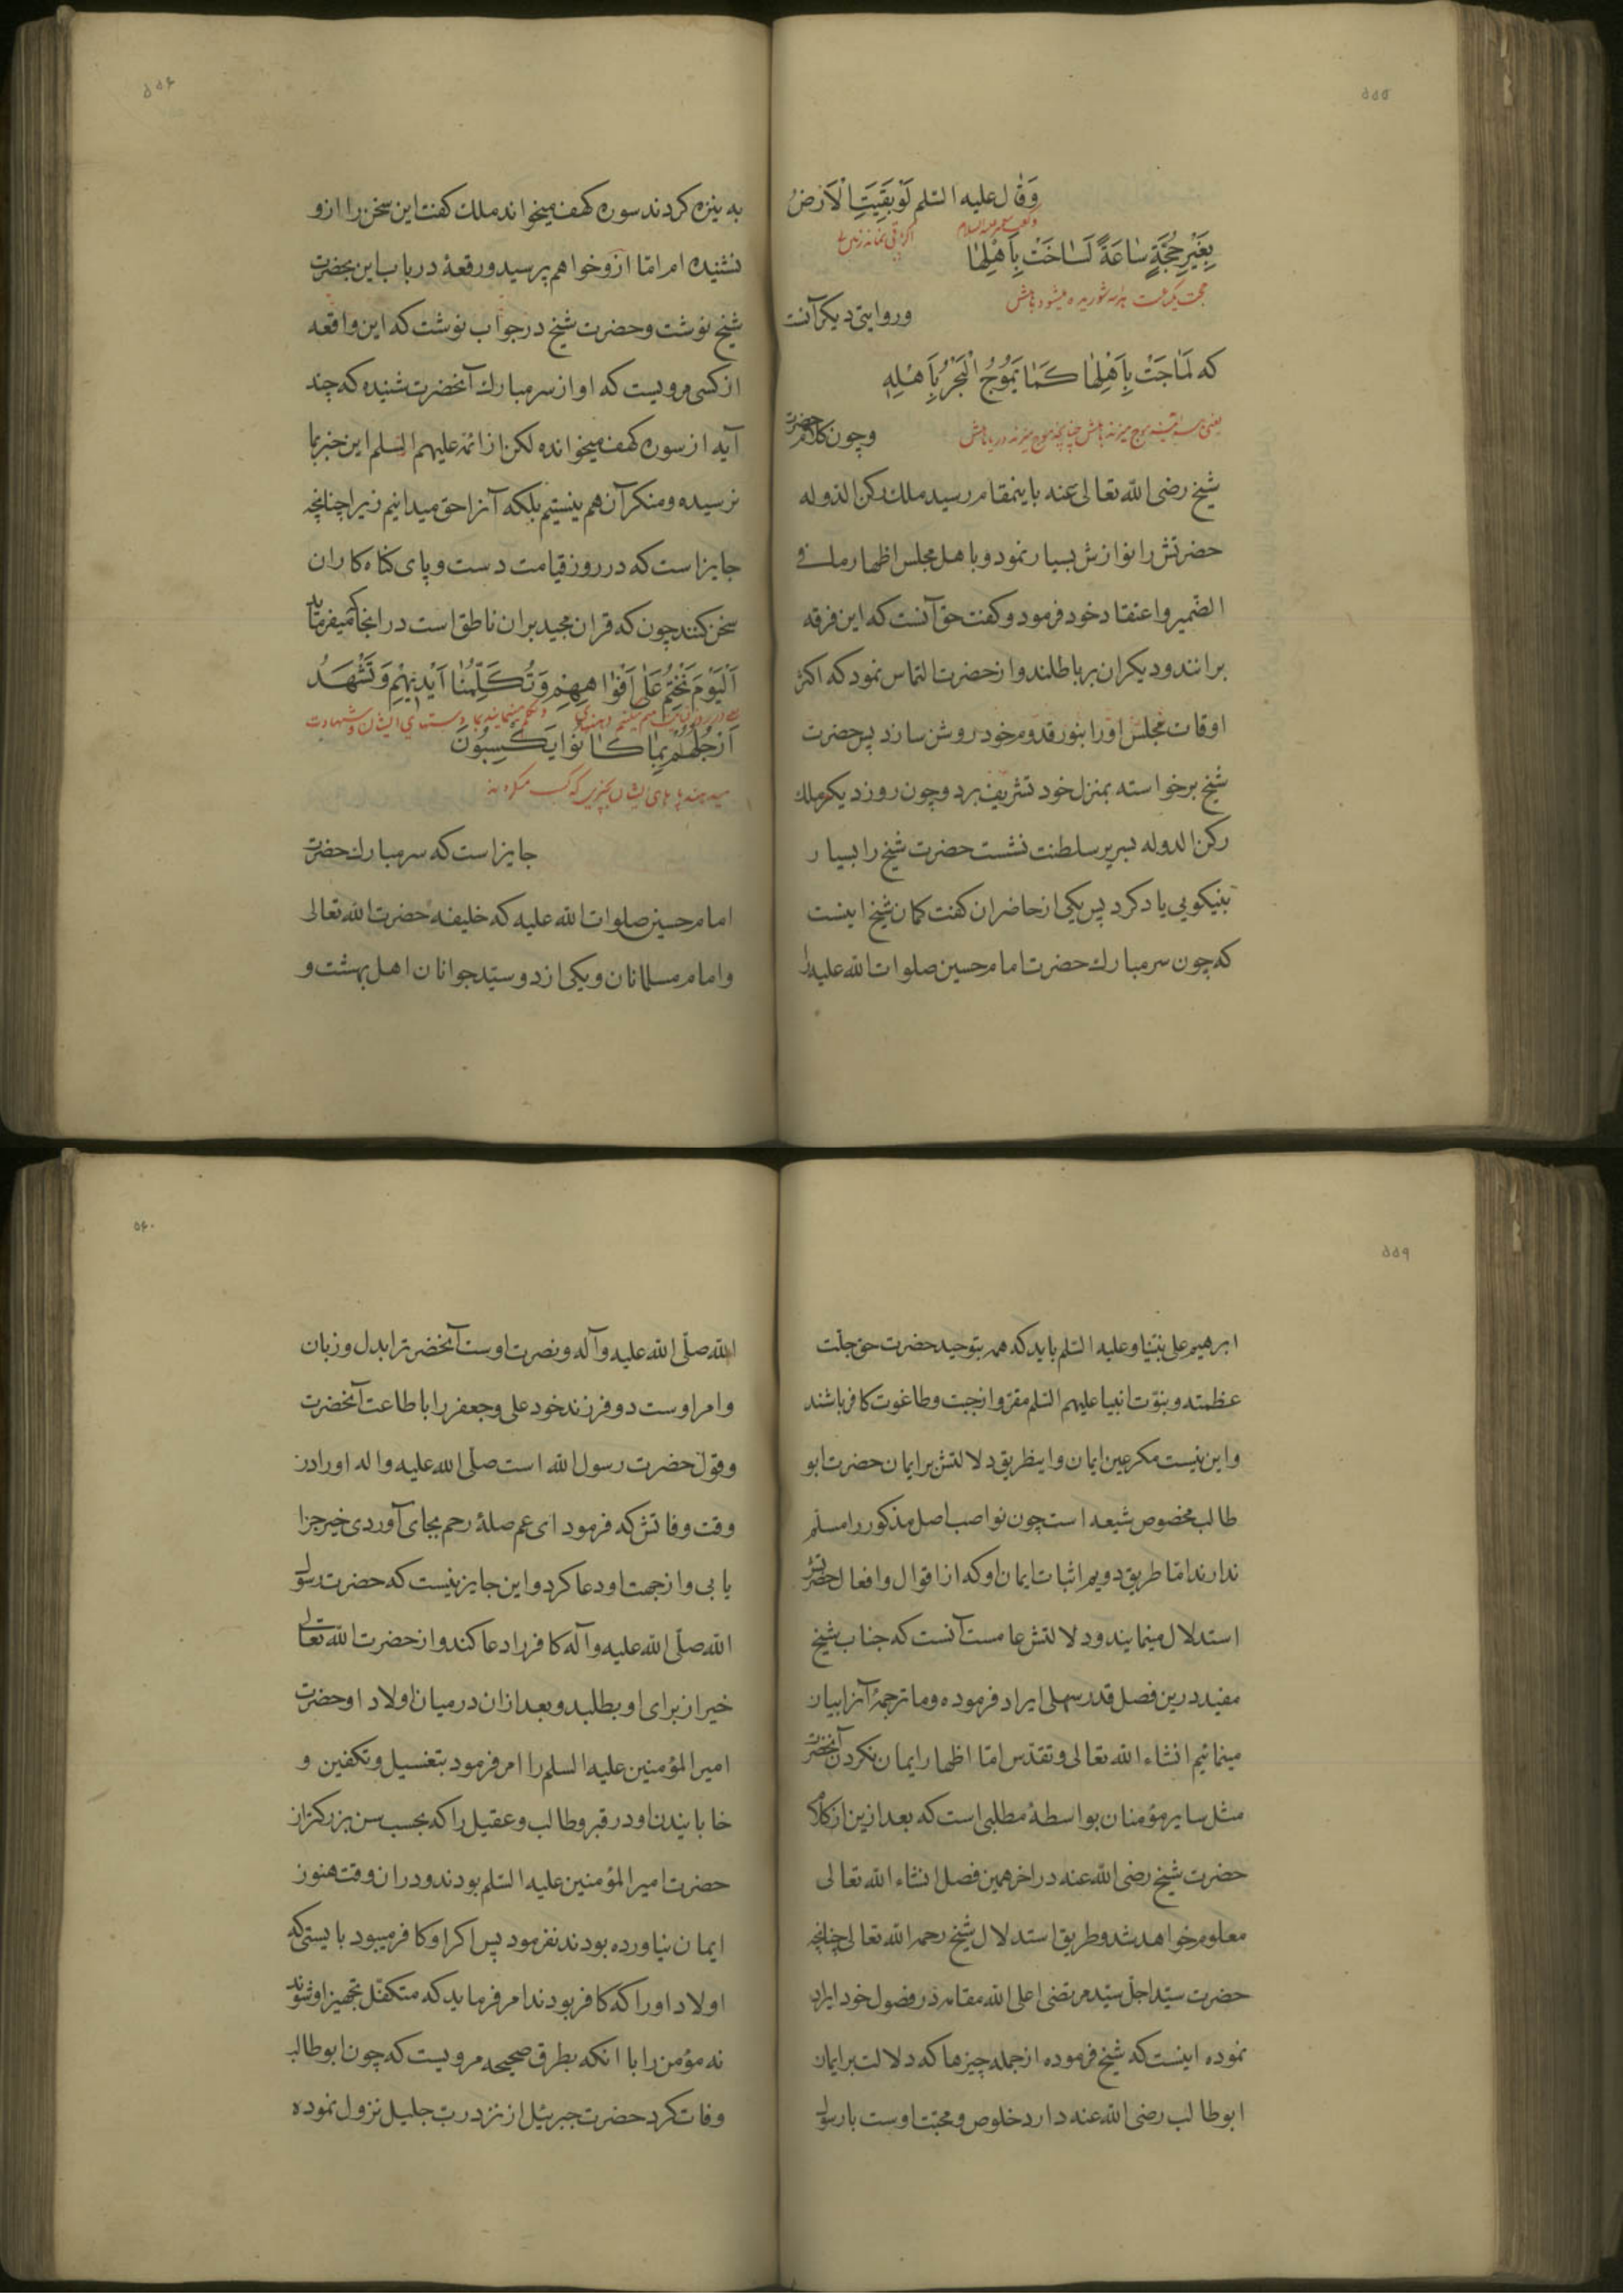 ۵۵۵
وَقٰال علیه السّلم لَوْبَقِیَتِ الْاَرْضُ
بِغَیْرِ حُجَّةٍ سٰاعَةً لَسٰاخَتْ بِاَهْلِهٰا
وروایتی دیکر آنست
که لَمٰاجَتْ بِاَهْلِهٰا کَمٰا یَمُوْجُ الْبَحْرُ بِاَهْلِهِ
وچون کلام حضرت
شیخ رضی الله تعالی عنه باینمقام رسید ملك رکن الدوله
حضرتش را نوازش بسیار نمود و با هل مجلس اظهار ما فی
الضّمیر واعتقاد خود فرمود وکفت حق آنست که این فرقه
برانند ودیکران بر باطلند واز حضرت التماس نمود که اکثر
اوقات مجلس اورا بنور قدوم خود روشن سازد پس حضرت
شیخ برخواسته بمنزل خود تشریف برد وچون روز دیکر ملك
رکن الدوله بسریر سلطنت نشست حضرت شیخ را بسیار
بنیکویی یاد کرد پس یکی از حاضران کفت کمان شیخ اینست
که چون سر مبارك حضرت امام حسین صلوات الله علیه را
۵۵۶
به نیزه کردند سوره کهف میخواند ملك کفت این سخن را ازو
نشنیده ام امّا ازو خواهم پرسید ورقعهٔ درباب این بحضرت
شیخ نوشت وحضرت شیخ در جواب نوشت که این واقعه
از کسی مرویست که او از سر مبارك آنحضرت شنیده که چند
آیه از سوره کهف میخوانده لکن از ائمه علیهم السلم این خبر بما
نرسیده ومنکر آن هم نیستیم بلکه آنرا حق میدانیم زیرا چنانچه
جایز است که در روز قیامت دست و پای کناه کاران
سخن کنند چون که قران مجید بران ناطق است در انجا که میفرماید
اَلْیَوْمَ نَخْتِمُ عَلٰی اَفْوٰاهِهِمْ وَتُکَلِّمُنٰا اَیْدِیْهِمْ وَتَشْهَدُ
اَرْجُلُهُمْ بِمٰا کٰانُوْا یَکْسِبُوْنَ
جایز است که سر مبارك حضرت
امام حسین صلوات الله علیه که خلیفه حضرت الله تعالی
وامام مسلمانان ویکی از دو سیّد جوانان اهل بهشت و
۵۵۹
ابرهیم علی نبیّنا وعلیه السّلم باید که همه بتوحید حضرت حق جلّت
عظمته ونبوّت انبیا علیهم السّلم مقرّ واز جبت وطاغوت کافر باشند
واین نیست مکر عین ایمان واینطریق دلالتش بر ایمان حضرت ابو
طالب مخصوص شیعه است چون نواصب اصل مذکور را مسلّم
ندارند امّا طریق دویم اثبات ایمان او که از اقوال وافعال حضرتش
استدلال مینمایند ودلالتش عامست آنست که جناب شیخ
مفید درین فصل قدر سهلی ایراد فرموده وما ترجمهٔ آنرا بیان
مینمائیم انشاء الله تعالی وتقدّس امّا اظهار ایمان نکردن آنحضرت
مثل سایر مؤمنان بواسطهٔ مطلبی است که بعد ازین از کلام
حضرت شیخ رضی الله عنه در اخر همین فصل انشاء الله تعالی
معلوم خواهد شد وطریق استدلال شیخ رحمه الله تعالی چنانچه
حضرت سیّد اجلّ سیّد مرتضی اعلی الله مقامه در فصول خود ایراد
نموده اینست که شیخ فرموده از جمله چیزها که دلالت بر ایمان
ابو طالب رضی الله عنه دارد خلوص ومحبّت اوست با رسول
۵۶۰
الله صلّی الله علیه وآله ونصرت اوست آنحضرت را بدل وزبان
وامر اوست دو فرزند خود علی وجعفر را باطاعت آنحضرت
وقول حضرت رسول الله است صلّی الله علیه واله اورا در
وقت وفاتش که فرمود ای عم صلهٔ رحم بجای آوردی خیر جزا
یابی واز جهت او دعا کرد واین جایز نیست که حضرت رسول
الله صلّی الله علیه وآله کافر را دعا کند واز حضرت الله تعالی
خیر از برای او بطلبد وبعد ازان در میان اولاد او حضرت
امیر المؤمنین علیه السلم را امر فرمود بتغسیل وتکفین و
خابانیدن او در قبر وطالب وعقیل را که بحسب سن بزرکتر از
حضرت امیر المؤمنین علیه السّلم بودند ودران وقت هنوز
ایمان نیاورده بودند نفرمود پس اکر او کافر میبود بایستی که
اولاد اورا که کافر بودند امر فرماید که متکفّل تجهیز او شوند
نه مؤمن را با انکه بطرق صحیحه مرویست که چون ابو طالب
وفات کرد حضرت جبرئیل از نزد ربّ جلیل نزول نموده